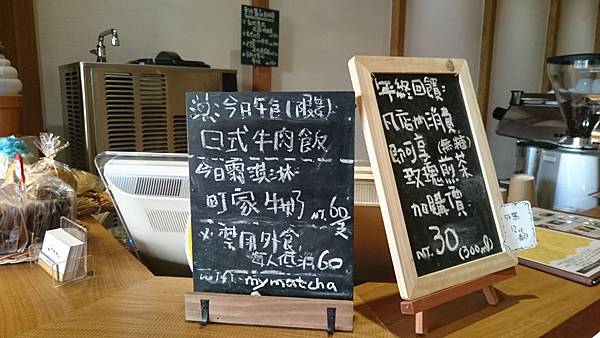 今日午食(限量):
日式牛肉飯
今日霜淇淋
町家牛奶 NT.60元
禁用外食
每人低消60
wifi: mymatcha
年終回饋:
凡店內消費
即可享 無糖
玫瑰煎茶
加購價:
NT. 30 (300ml)